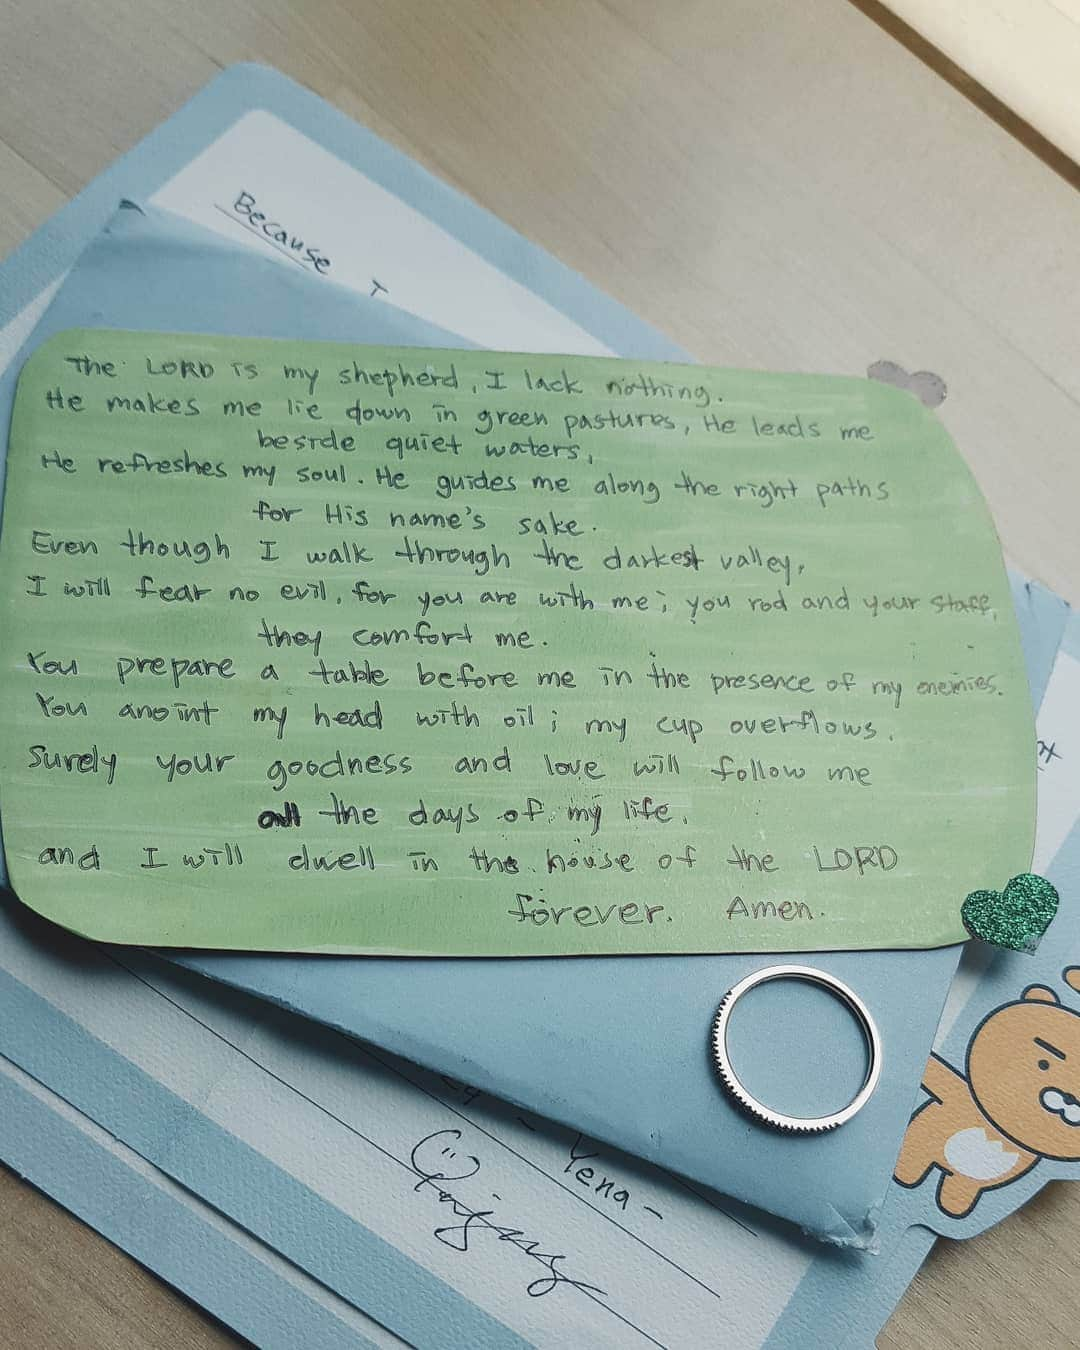 Because I
The LORD is my shepherd, I lack nothing.
He makes me lie down in green pastures, He leads me
beside quiet waters,
He refreshes my soul. He guides me along the right paths
for His name's sake.
Even though I walk through the darkest valley,
I will fear no evil, for you are with me; you rod and your staff,
they comfort me.
You prepare a table before me in the presence of my enemies.
You anoint my head with oil; my cup overflows.
Surely your goodness and love will follow me
all the days of my life,
and I will dwell in the house of the LORD
forever. Amen.
- Yena -